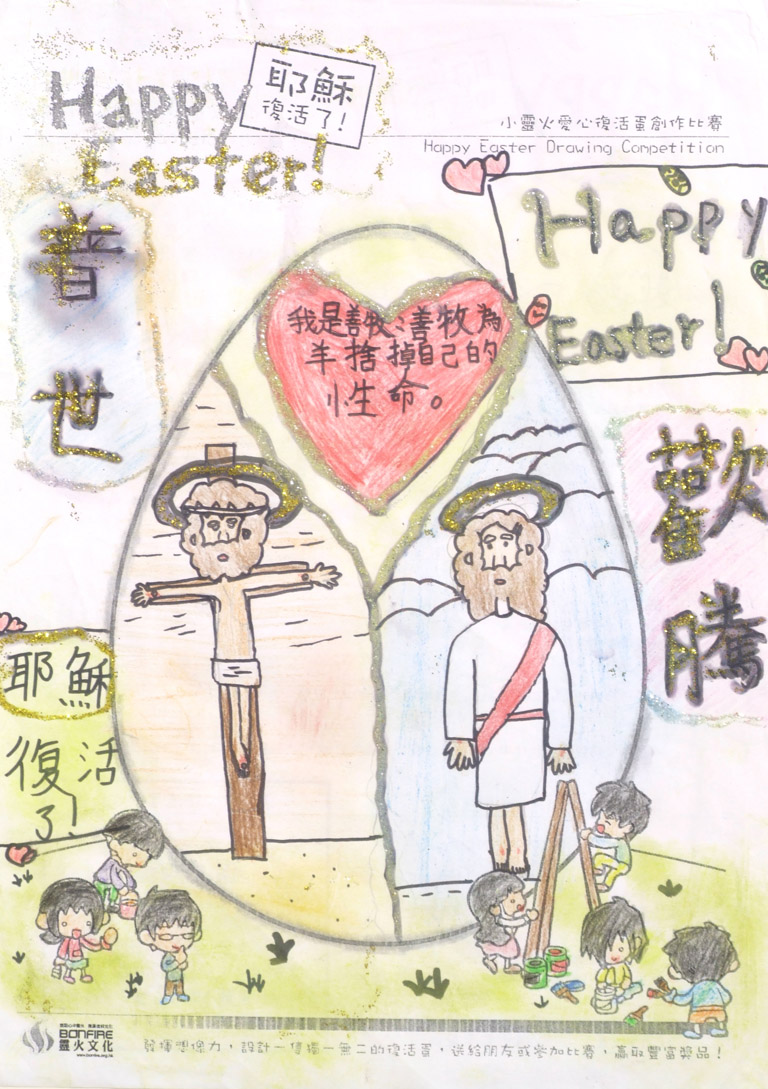 Happy
Easter!
耶穌
復活了!
小靈火愛心復活蛋創作比賽
Happy Easter Drawing Competition
Happy
Easter!
普世
歡騰
我是善牧、善牧為
羊捨掉自己的
性命。
耶穌
復活
了!
BONFIRE
靈火文化
發揮想像力,設計一隻獨一無二的復活蛋,送給朋友或參加比賽,贏取豐富獎品!